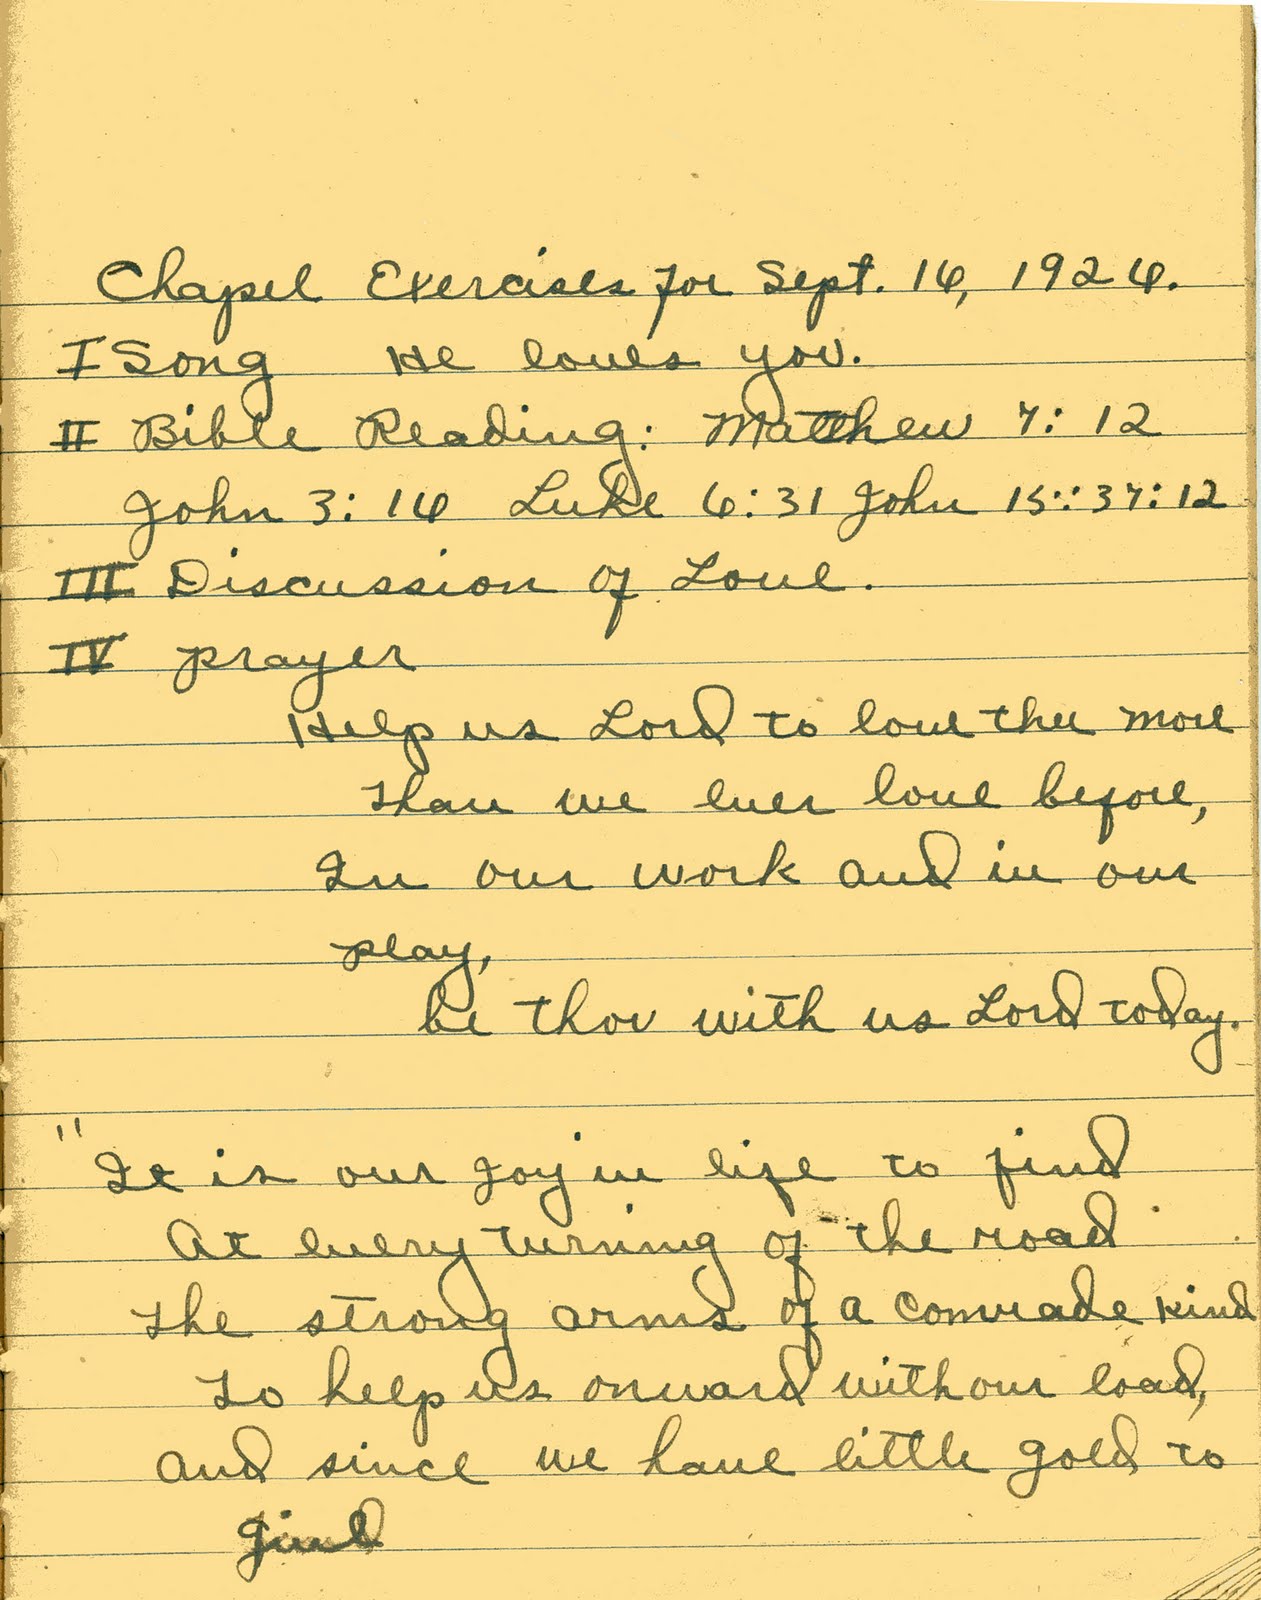 Chapel Exercises for Sept. 16, 1926.
I Song He loves you.
II Bible Reading: Matthew 7:12
John 3:16 Luke 6:31 John 15::37:12
III Discussion of Love.
IV prayer
Help us Lord to love thee more
Than we ever love before,
In our work and in our
play,
be thou with us Lord today.
"It is our joy in life to find
At every turning of the road
The strong arms of a comrade kind
To help us onward with our load,
And since we have little gold to